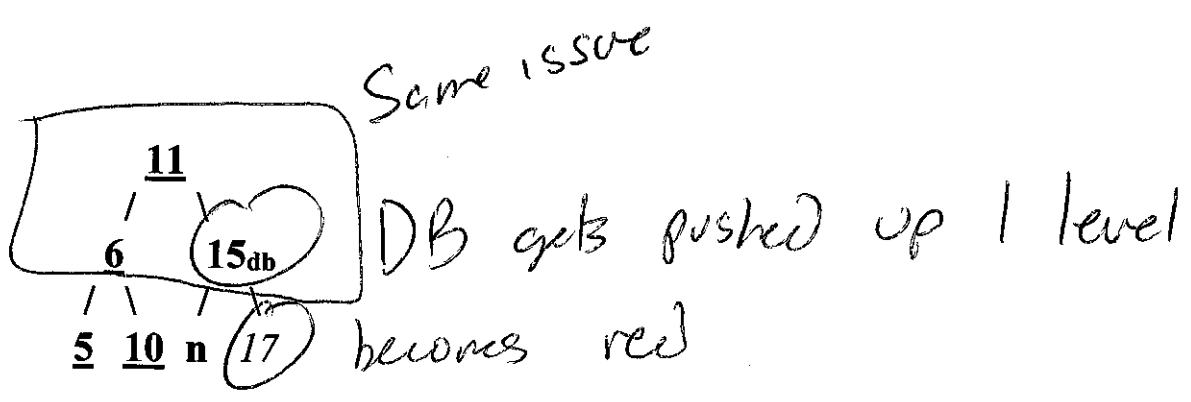 Same issue
11
6 15db DB gets pushed up 1 level
5 10 n 17 becomes red